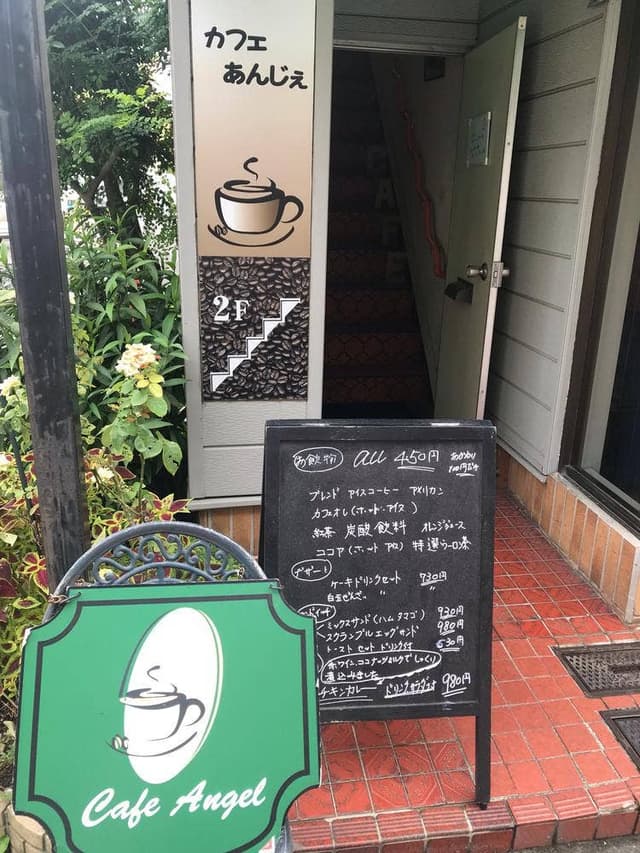 カフェ
あんじぇ
2F
CAFE
お飲物 all 450円 おかわり
100円引き
ブレンド アイスコーヒー アメリカン
カフェオレ(ホット・アイス)
紅茶 炭酸飲料 オレンジジュース
ココア(ホット アイス) 特選ウーロン茶
デザート
ケーキドリンクセット 730円
白玉ぜんざい 〃 〃
ミックスサンド(ハム タマゴ) 930円
スクランブルエッグサンド 980円
トースト セット ドリンク付 630円
赤ワイン、ココナッツミルクでじっくり
煮込みました
チキンカレー ドリンクサラダ付 980円
Cafe Angel